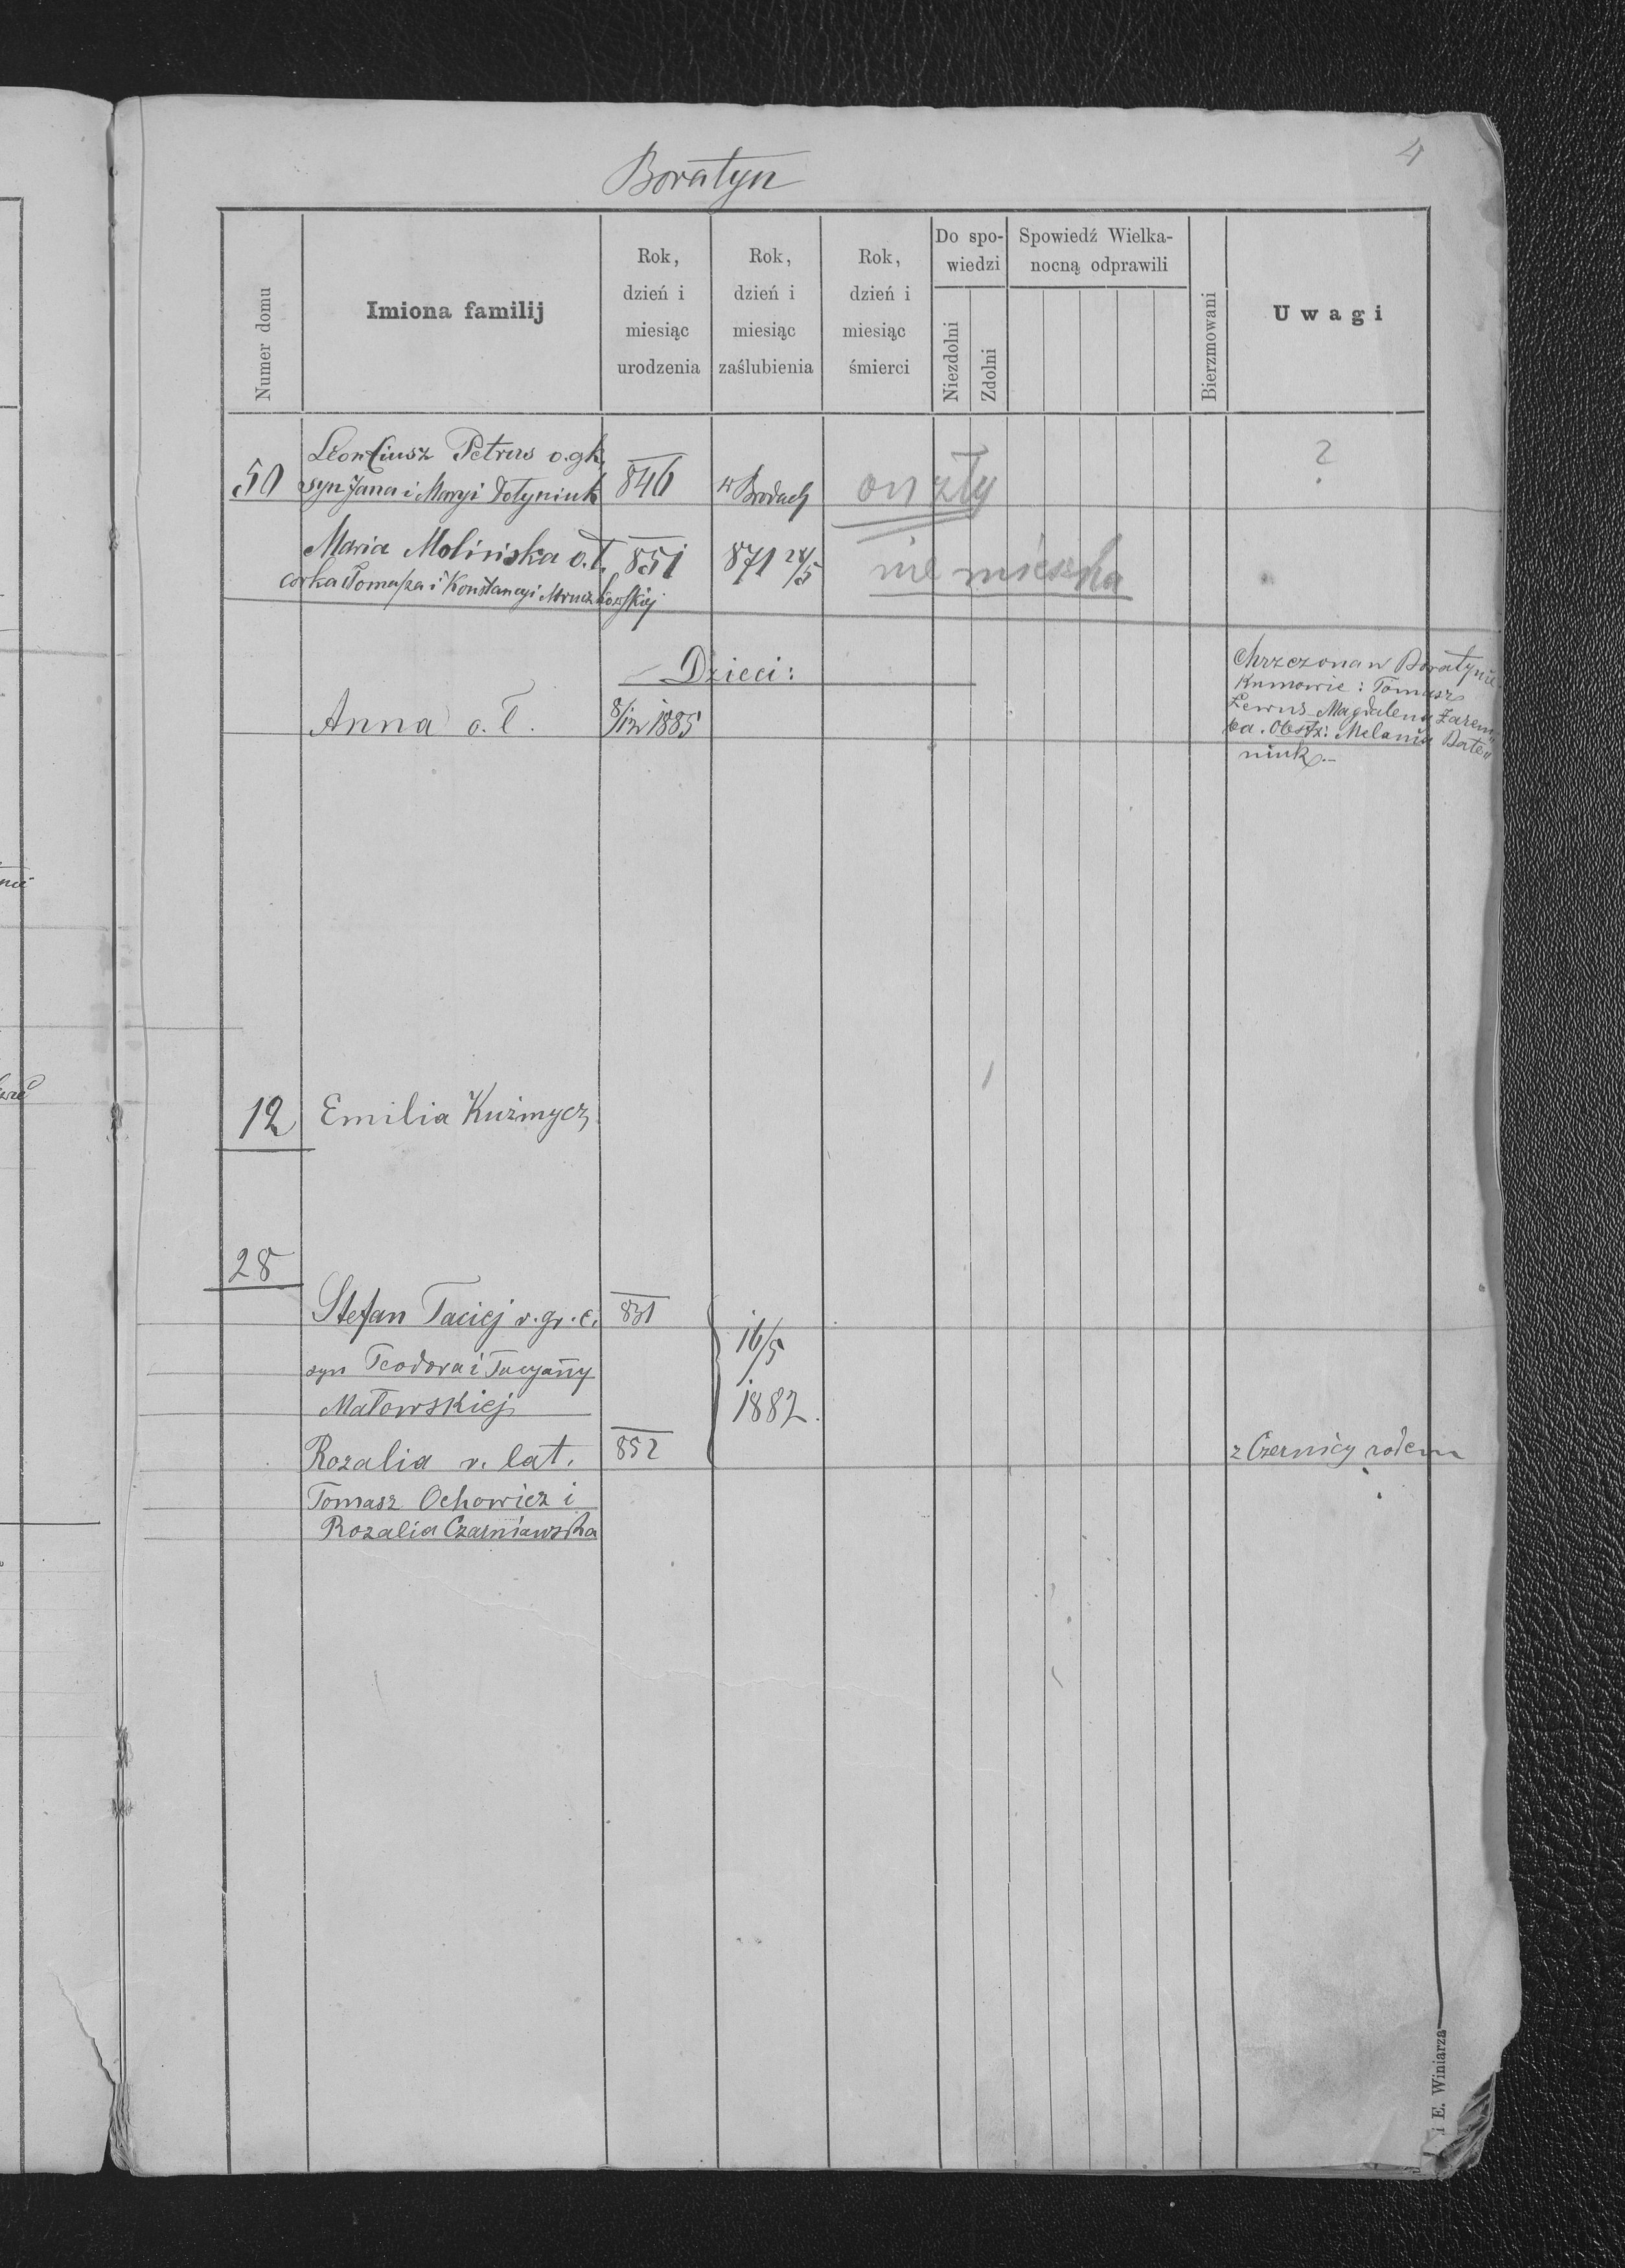 4
Boratyn
Numer domu
Imiona familij
Rok,
dzień i
miesiąc
urodzenia
Rok,
dzień i
miesiąc
zaślubienia
Rok,
dzień i
miesiąc
śmierci
Do spo-
wiedzi
Niezdolni
Zdolni
Spowiedź Wielka-
nocną odprawili
Bierzmowani
Uwagi
50 Leontiusz Petrus o.gk. 846 w Brodach on zły ?
syn Jana i Maryi Dołyniuk
Maria Molińska o.ł. 851 871 24/5 nie mieszka
córka Tomasza i Konstancyi Mruczkowskiej
Dzieci:
Anna o.ł. 8/12 1885
Chrzczona w Boratynie
Kumowie: Tomasz
Lewus Magdalena Zarem
ba. Obstz: Melania Bate
niuk.-
12 Emilia Kuźmycz
28
Stefan Taciej r. gr. c. 831
syn Teodora i Tacyanny
Małowskiej
16/5
1882.
Rozalia r. lat. 852 z Czernicy rodem
Tomasz Ochowicz i
Rozalia Czarniawska
i E. Winiarza